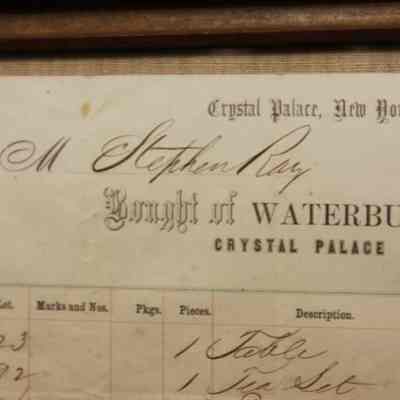 Crystal Palace, New Yor
M Stephen Ray
Bought of WATERBU
CRYSTAL PALACE
Lot. Marks and Nos. Pkgs. Pieces. Description.
23 1 Table
92 1 Tea Set